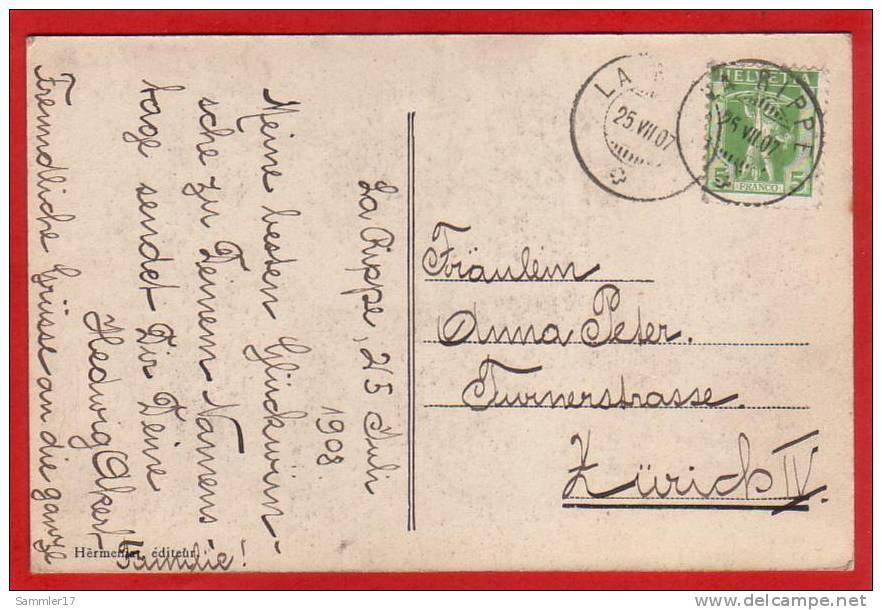 La Rippe, 25 Juli
1908.
Meine besten Glückwün-
sche zu Deinem Namens-
tage sendet Dir Deine
Hedwig Akert
Freundliche Grüsse an die ganze
Familie!
Hermenjat, éditeur.
LA
25.VII.07
LA RIPPE
25.VII.07
HELVETIA
5
FRANCO
5
Fräulein
Anna Peter.
Turnerstrasse.
Zürich IV.
Sammler17